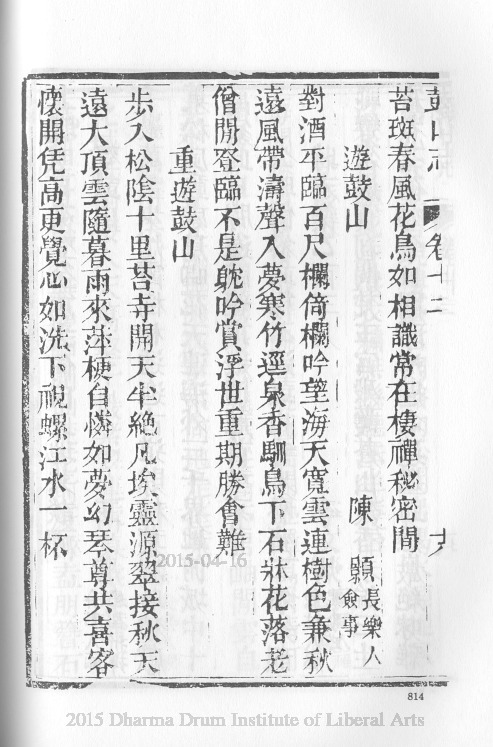 鼓山志 卷十二
苔斑春風花鳥如相識常在樓禪秘密間
遊鼓山 陳 長樂人僉事
對酒平臨百尺欄倚欄吟望海天寬雲連樹色兼秋
遠風帶濤聲入夢寒竹逕泉香馴鳥下石牀花落老
僧閒登臨不是躭吟賞浮世重期勝會難
重遊鼓山
步入松陰十里苔寺開天半絶凡埃靈源翠接秋天
遠大頂雲隨暮雨來萍梗自憐如夢幻琴尊共喜客
懷開凭高更覺心如洗下視螺江水一杯
814
2015-04-16
2015 Dharma Drum Institute of Liberal Arts